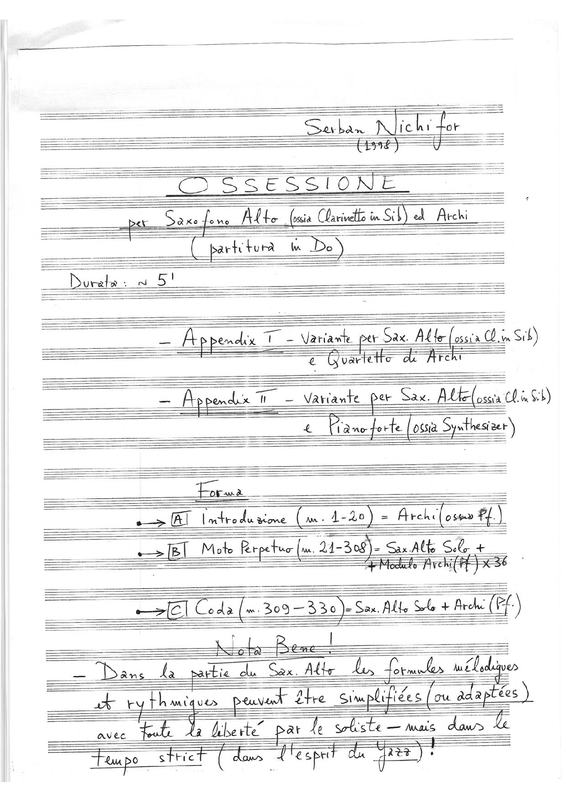 Serban Nichifor
(1998)
OSSESSIONE
per Saxofono Alto (ossia Clarinetto in Sib) ed Archi
(partitura in Do)
Durata: ~ 5'
- Appendix I - Variante per Sax. Alto (ossia Cl. in Sib)
e Quartetto di Archi
- Appendix II - Variante per Sax. Alto (ossia Cl. in Sib)
e Pianoforte (ossia Synthesizer)
Forma
A Introduzione (m. 1-20) = Archi (Pf.)
B Moto Perpetuo (m. 21-308) = Sax. Alto Solo +
+ Modulo Archi (Pf) x 36
C Coda (m. 309-330) = Sax. Alto Solo + Archi (Pf.)
Nota Bene!
- Dans la partie du Sax. Alto les formules mélodiques
et rythmiques peuvent être simplifiées (ou adaptées)
avec toute la liberté par le soliste - mais dans le
tempo strict (dans l'esprit du Yazz)!